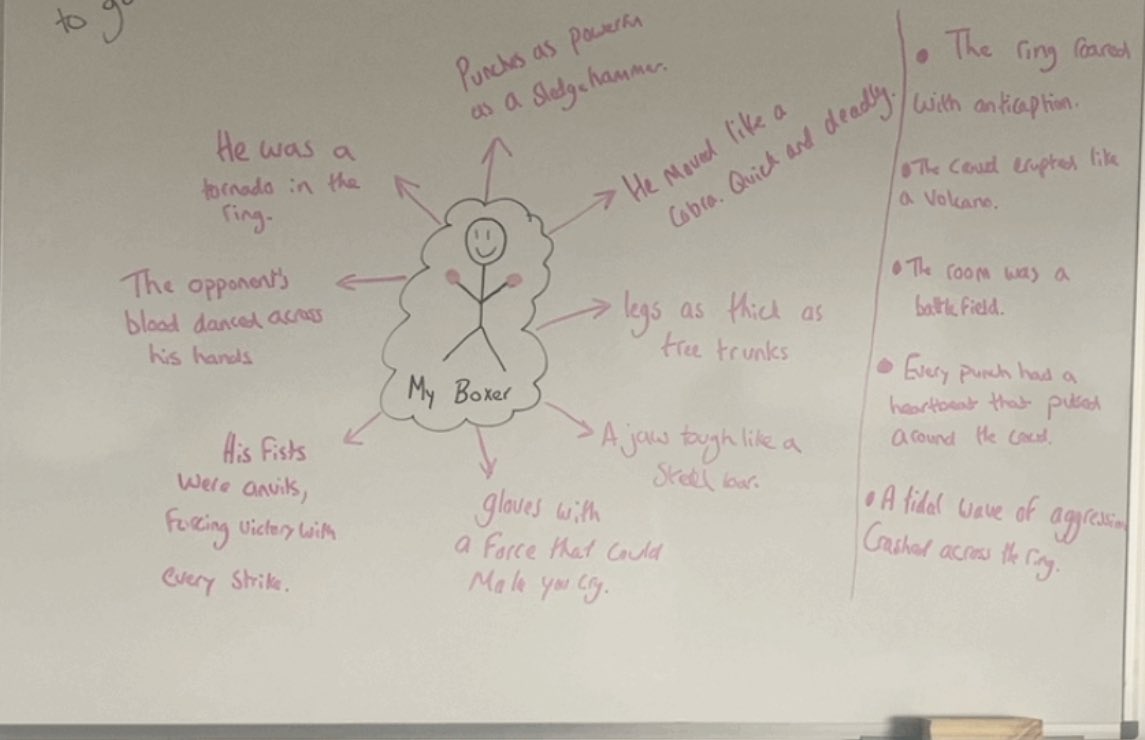 to
Punches as powerful
as a Sledgehammer.
He Moved like a
Cobra. Quick and deadly.
He was a
tornado in the
ring.
The opponent's
blood danced across
his hands
legs as thick as
tree trunks
My Boxer
A jaw tough like a
Steel bar.
His Fists
Were anvils,
Forcing victory with
every strike.
gloves with
a Force that could
Make you cry.
• The ring roared
with anticaption.
• The crowd erupted like
a Volcano.
• The room was a
battlefield.
• Every punch had a
heartbeat that pulsed
around the crowd.
• A tidal wave of aggression
Crashed across the ring.